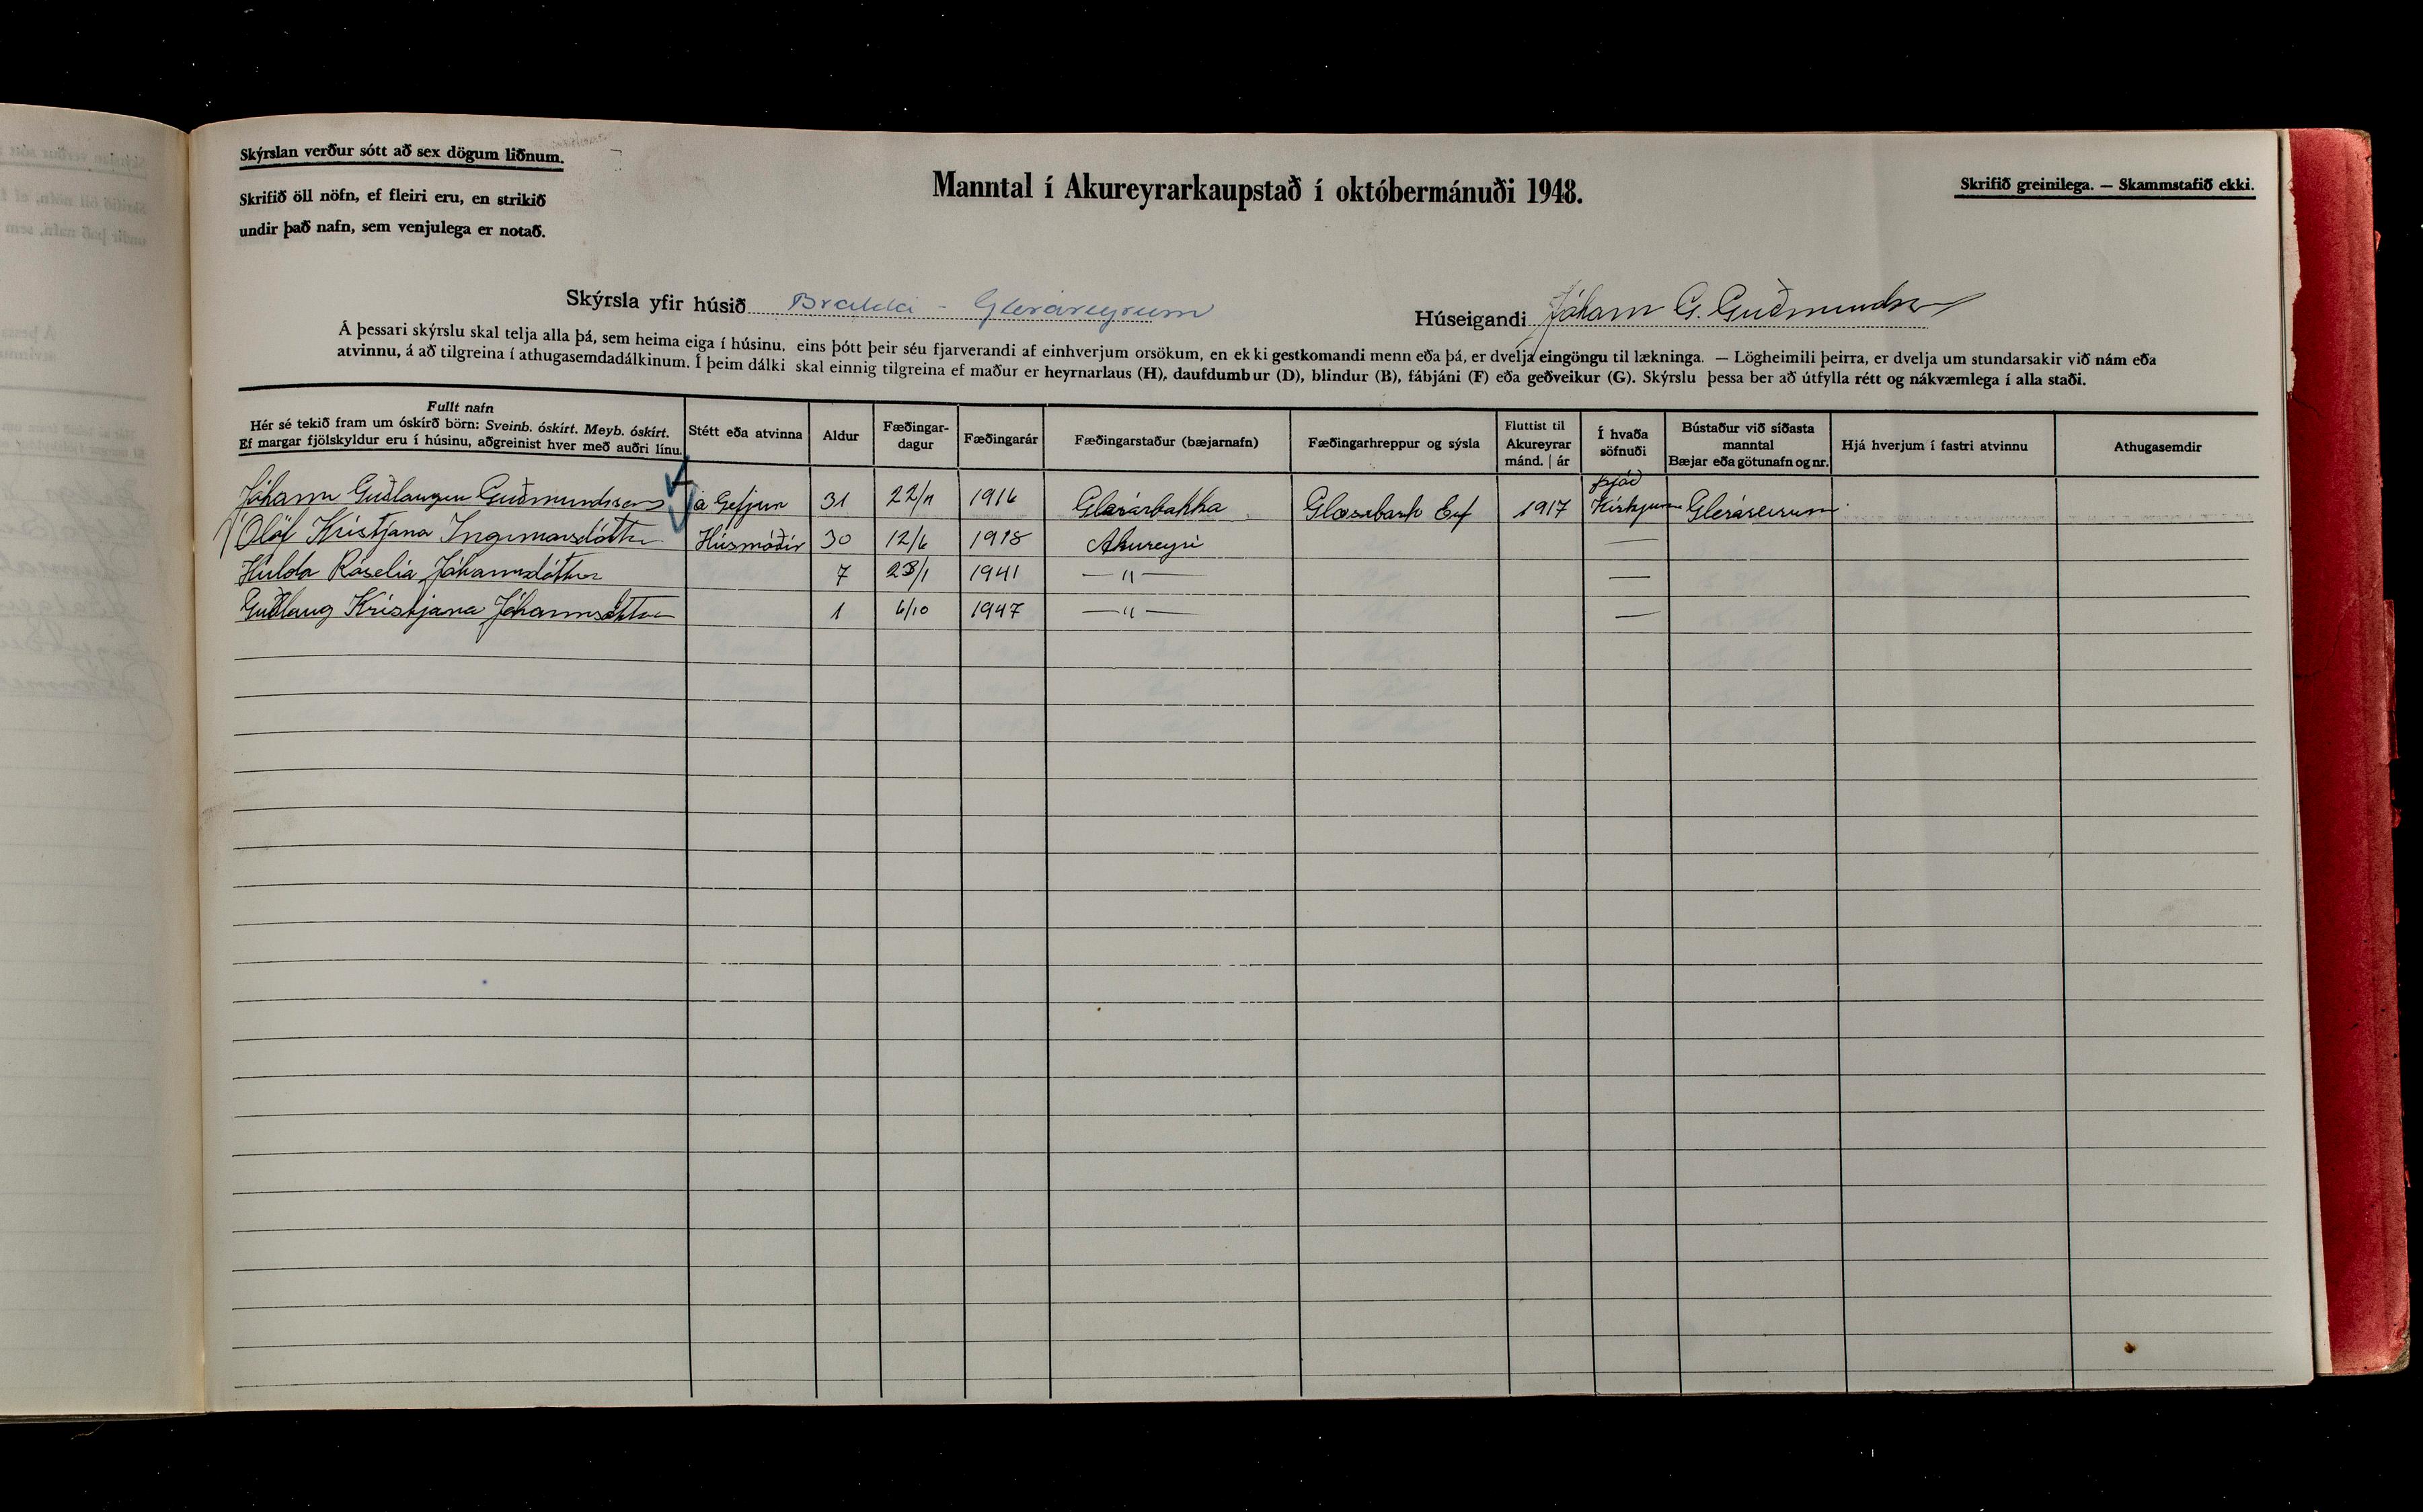 Skýrslan verður sótt að sex dögum liðnum.
Skrifið öll nöfn, ef fleiri eru, en strikið
undir það nafn, sem venjulega er notað.
Manntal í Akureyrarkaupstað í októbermánuði 1948.
Skrifið greinilega. — Skammstafið ekki.
Skýrsla yfir húsið Brakki - Gleráreyrum
Húseigandi Jóhann G. Guðmundsson
Á þessari skýrslu skal telja alla þá, sem heima eiga í húsinu, eins þótt þeir séu fjarverandi af einhverjum orsökum, en ekki gestkomandi menn eða þá, er dvelja eingöngu til lækninga. — Lögheimili þeirra, er dvelja um stundarsakir við nám eða
atvinnu, á að tilgreina í athugasemdadálkinum. Í þeim dálki skal einnig tilgreina ef maður er heyrnarlaus (H), daufdumbur (D), blindur (B), fábjáni (F) eða geðveikur (G). Skýrslu þessa ber að útfylla rétt og nákvæmlega í alla staði.
Fullt nafn
Hér sé tekið fram um óskírð börn: Sveinb. óskírt. Meyb. óskírt.
Ef margar fjölskyldur eru í húsinu, aðgreinist hver með auðri línu.
Stétt eða atvinna
Aldur
Fæðingar-
dagur
Fæðingarár
Fæðingarstaður (bæjarnafn)
Fæðingarhreppur og sýsla
Fluttist til
Akureyrar
mánd. | ár
Í hvaða
söfnuði
Bústaður við síðasta
manntal
Bæjar eða götunafn og nr.
Hjá hverjum í fastri atvinnu
Athugasemdir
Jóhann Guðlaugur Guðmundsson á Gefjun 31 22/11 1916 Glerárbakka Glæsibæh Eyf 1917 Þjóð Kirkjunn Gleráreirum
Ólöf Kristjana Ingimarsdóttir Húsmóðir 30 12/6 1918 Akureyri —
Hulda Róselia Jóhannsdóttir 7 23/1 1941 — " — —
Guðlaug Kristjana Jóhannsdóttir 1 6/10 1947 — " — —